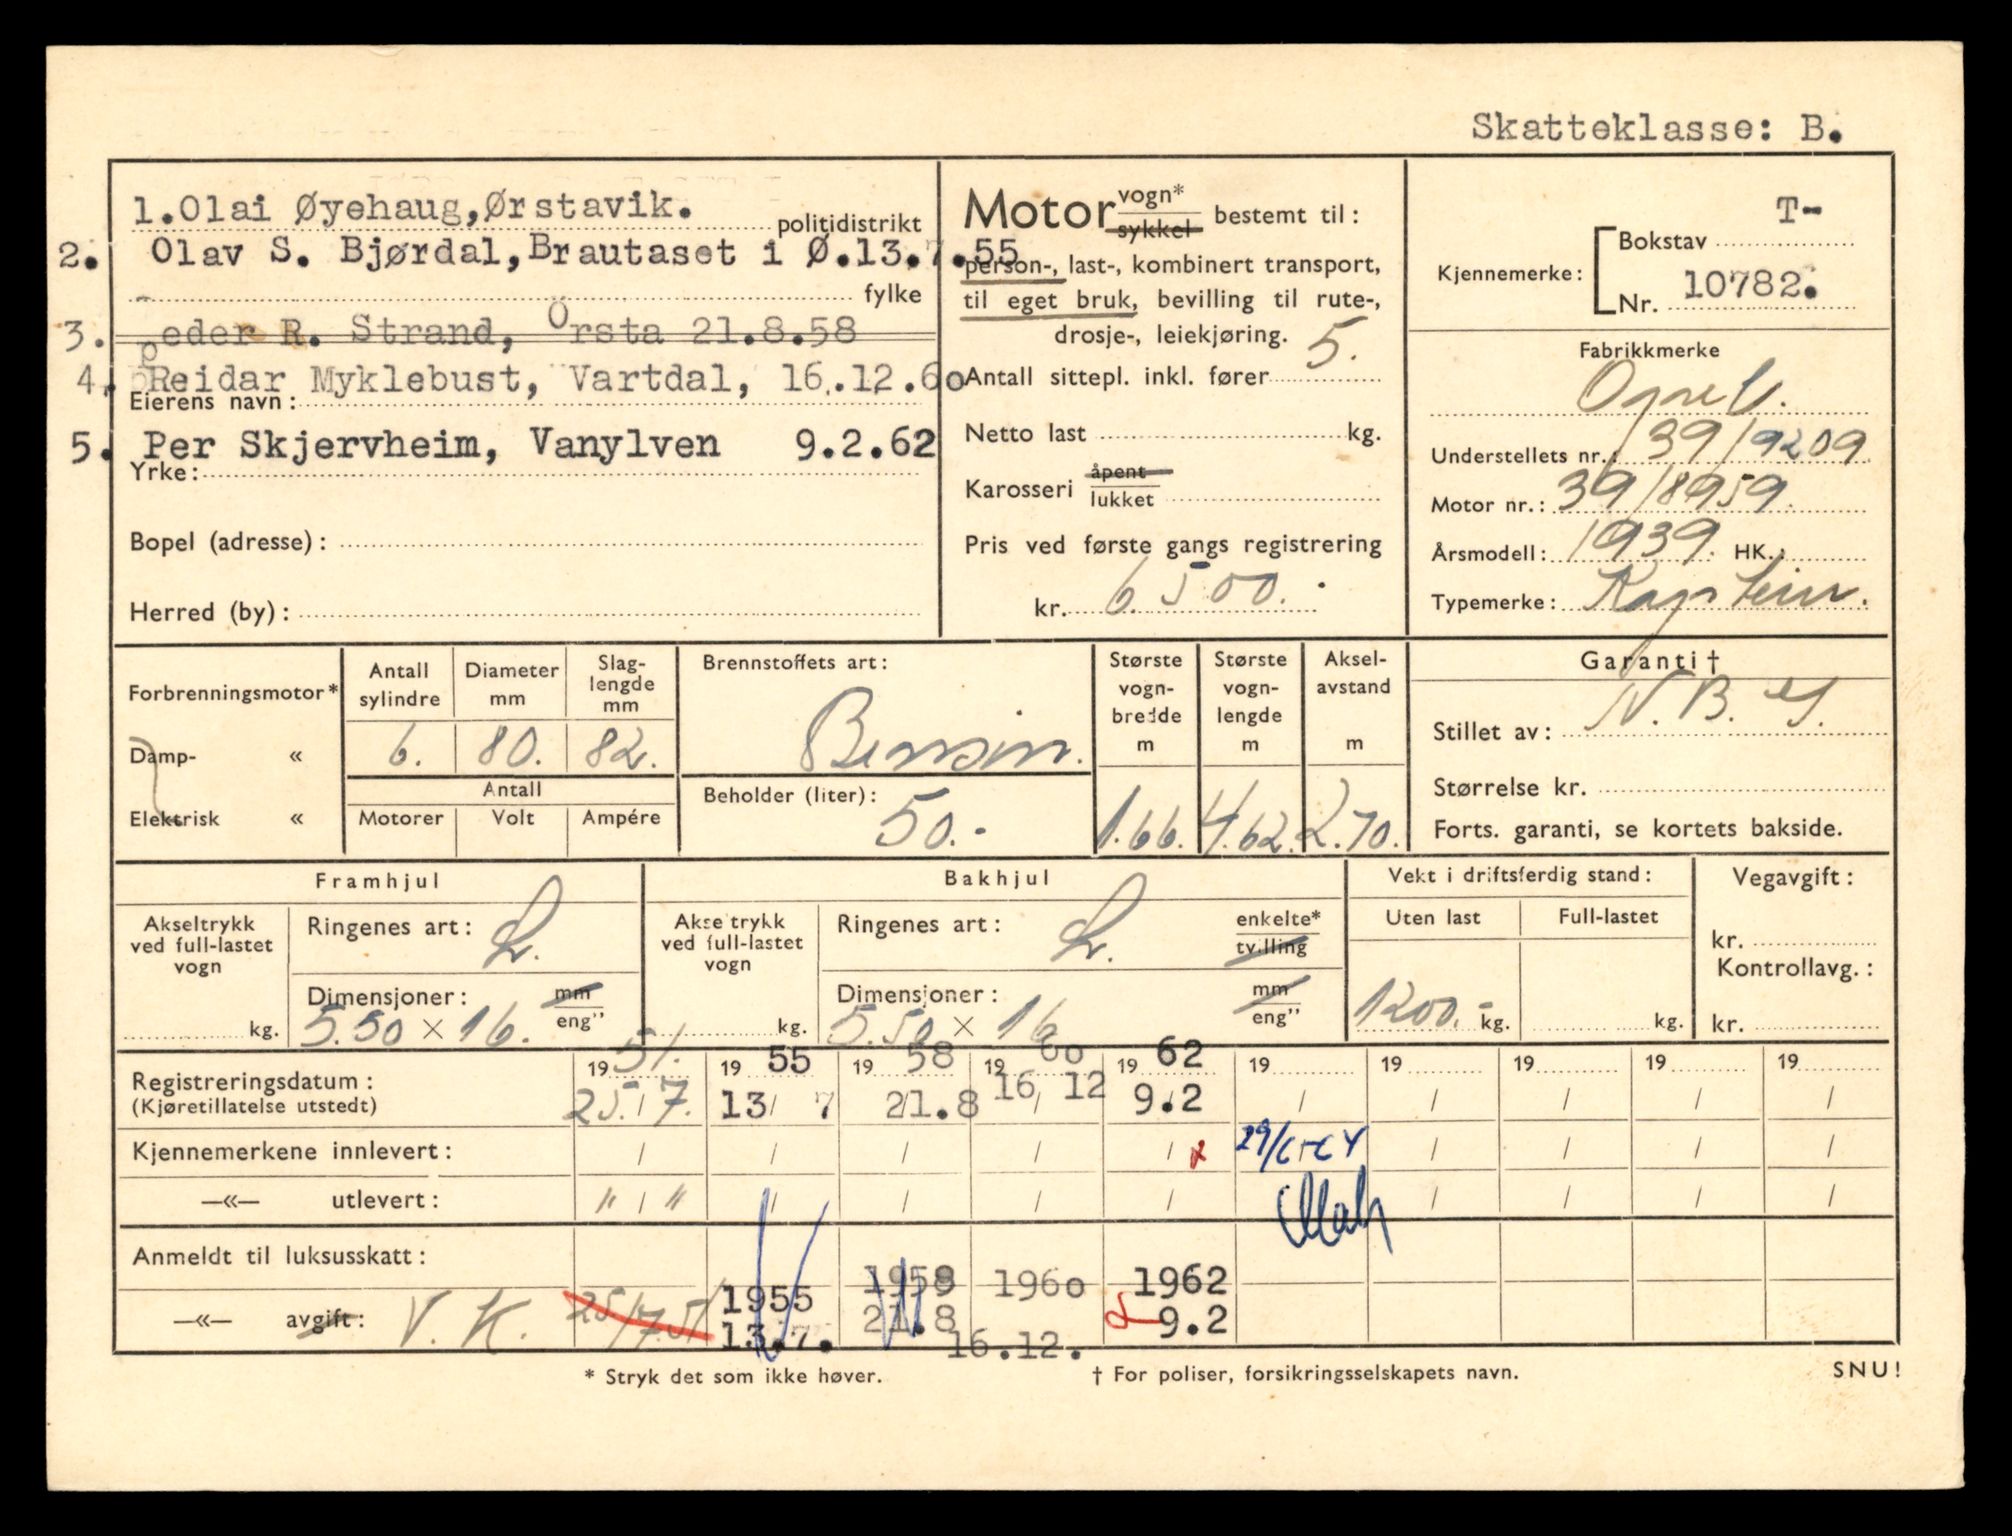 Skatteklasse: B.
1.Olai Øyehaug,Ørstavik.
politidistrikt
2. Olav S. Bjørdal,Brautaset i Ø.13.7.55
fylke
3. Peder R. Strand, Ørsta 21.8.58
4. Reidar Myklebust, Vartdal, 16.12.60
Eierens navn:
5. Per Skjervheim, Vanylven 9.2.62
Yrke:
Bopel (adresse):
Herred (by):
Motor vogn* sykkel bestemt til:
person-, last-, kombinert transport,
til eget bruk, bevilling til rute-,
drosje-, leiekjøring.
Antall sittepl. inkl. fører 5.
Netto last kg.
Karosseri åpent lukket
Pris ved første gangs registrering
kr. 6500.-
Kjennemerke:
Bokstav T-
Nr. 10782.
Fabrikkmerke
Opel.
Understellets nr.: 39/9209
Motor nr.: 39/8959.
Årsmodell: 1939. HK.:
Typemerke: Kaptein.
Forbrenningsmotor*
Damp- «
Elektrisk «
Antall sylindre
Diameter mm
Slag-lengde mm
6. 80. 82.
Antall
Motorer Volt Ampére
Brennstoffets art:
Bensin.
Beholder (liter):
50.-
Største vogn-bredde m
Største vogn-lengde m
Aksel-avstand m
1.66. 4.62. 2.70.
Garanti †
Stillet av:
Størrelse kr.
Forts. garanti, se kortets bakside.
Framhjul
Akseltrykk ved full-lastet vogn
kg.
Ringenes art: L.
Dimensjoner: mm eng”
5.50 × 16.
Bakhjul
Akseltrykk ved full-lastet vogn
kg.
Ringenes art: L.
enkelte* tvilling
Dimensjoner: mm eng”
5.50 × 16
Vekt i driftsferdig stand:
Uten last Full-lastet
1200.- kg. kg.
Vegavgift:
kr.
Kontrollavg.:
kr.
Registreringsdatum:
(Kjøretillatelse utstedt)
19 51. 19 55 19 58 19 60 19 62 19 19 19 19 19
25./7. 13/ 7 21.8 16/12 9.2 / / / / /
Kjennemerkene innlevert: / / / / / / / / /
—«— utlevert: " / " / / / / / / / /
Anmeldt til luksusskatt:
—«— avgift: V. K. 25/7.51
1955 1958 1960 1962
13.7. 21.8 16.12. 9.2
* Stryk det som ikke høver.
† For poliser, forsikringsselskapets navn.
SNU!